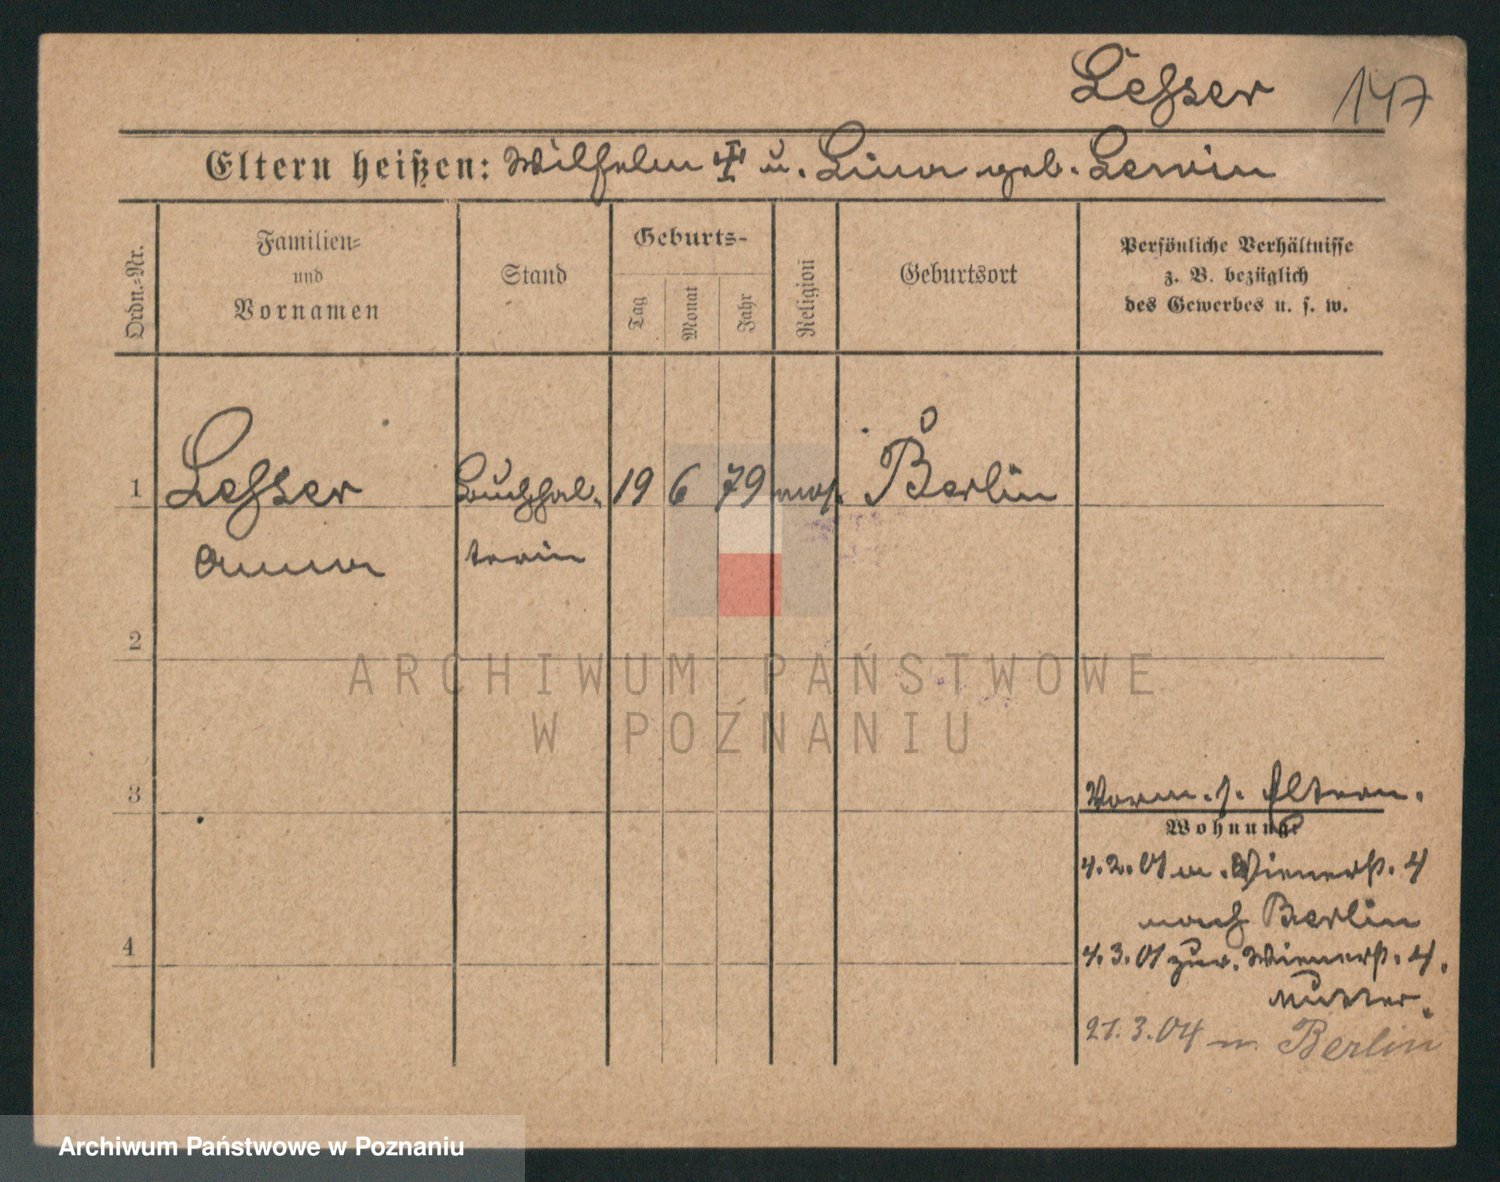 Lesser 147
Eltern heißen: Wilhelm ✝ u. Lina geb. Lewin
Ordn.-Nr.
Familien-
und
Vornamen
Stand
Geburts-
Tag
Monat
Jahr
Religion
Geburtsort
Persönliche Verhältnisse
z. B. bezüglich
des Gewerbes u. s. w.
1 Lesser Buchhal- 19 6 79 mos. Berlin
Anna terin
2
ARCHIWUM PAŃSTWOWE
W POZNANIU
3
Vorm. s. Eltern.
Wohnung:
4.2.01 n. Wienerstr. 4
nach Berlin
4
4.3.01 zur. Wienerstr. 4.
Mutter.
21.3.04 n. Berlin
Archiwum Państwowe w Poznaniu